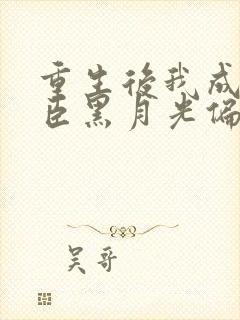 重生後我成
臣黑月光偏
吴哥